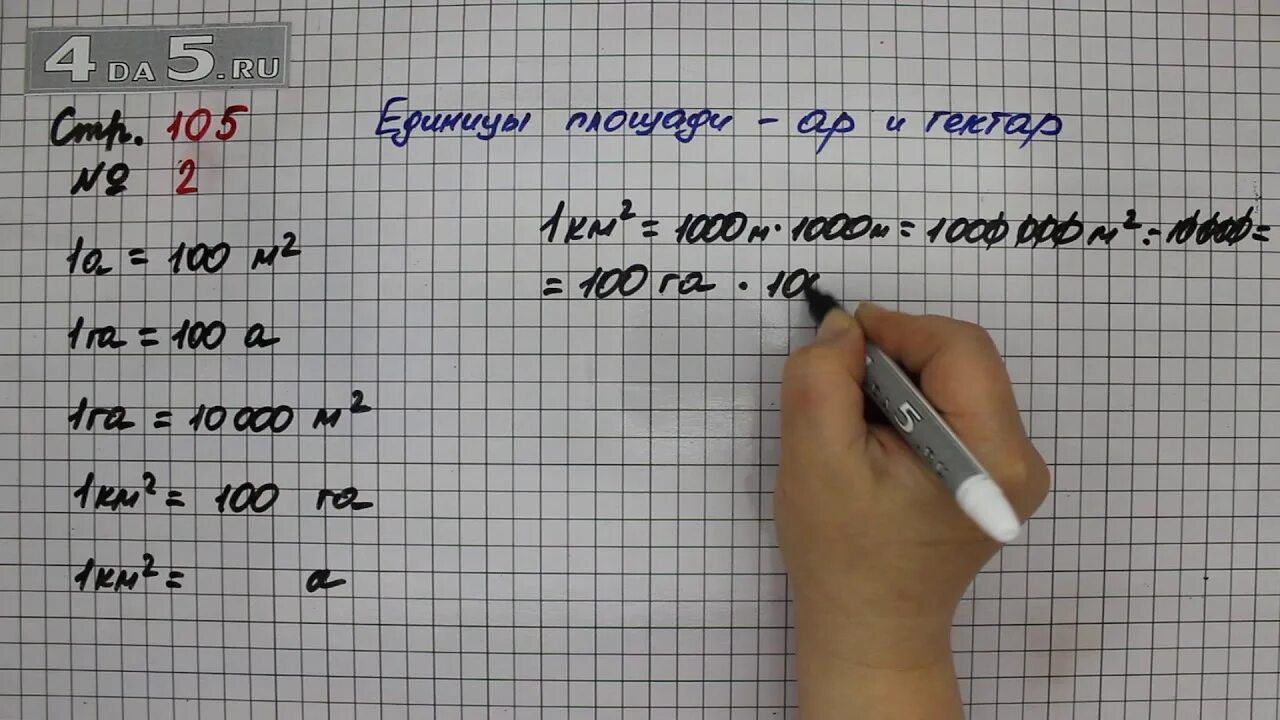 4DA5.RU
Стр. 105
№ 2
Единицы площади - ар и гектар
1а = 100 м²
1га = 100 а
1га = 10 000 м²
1км² = 100 га
1км² = а
1км² = 1000м · 1000м = 1000 000 м² : 10000 =
= 100 га · 10